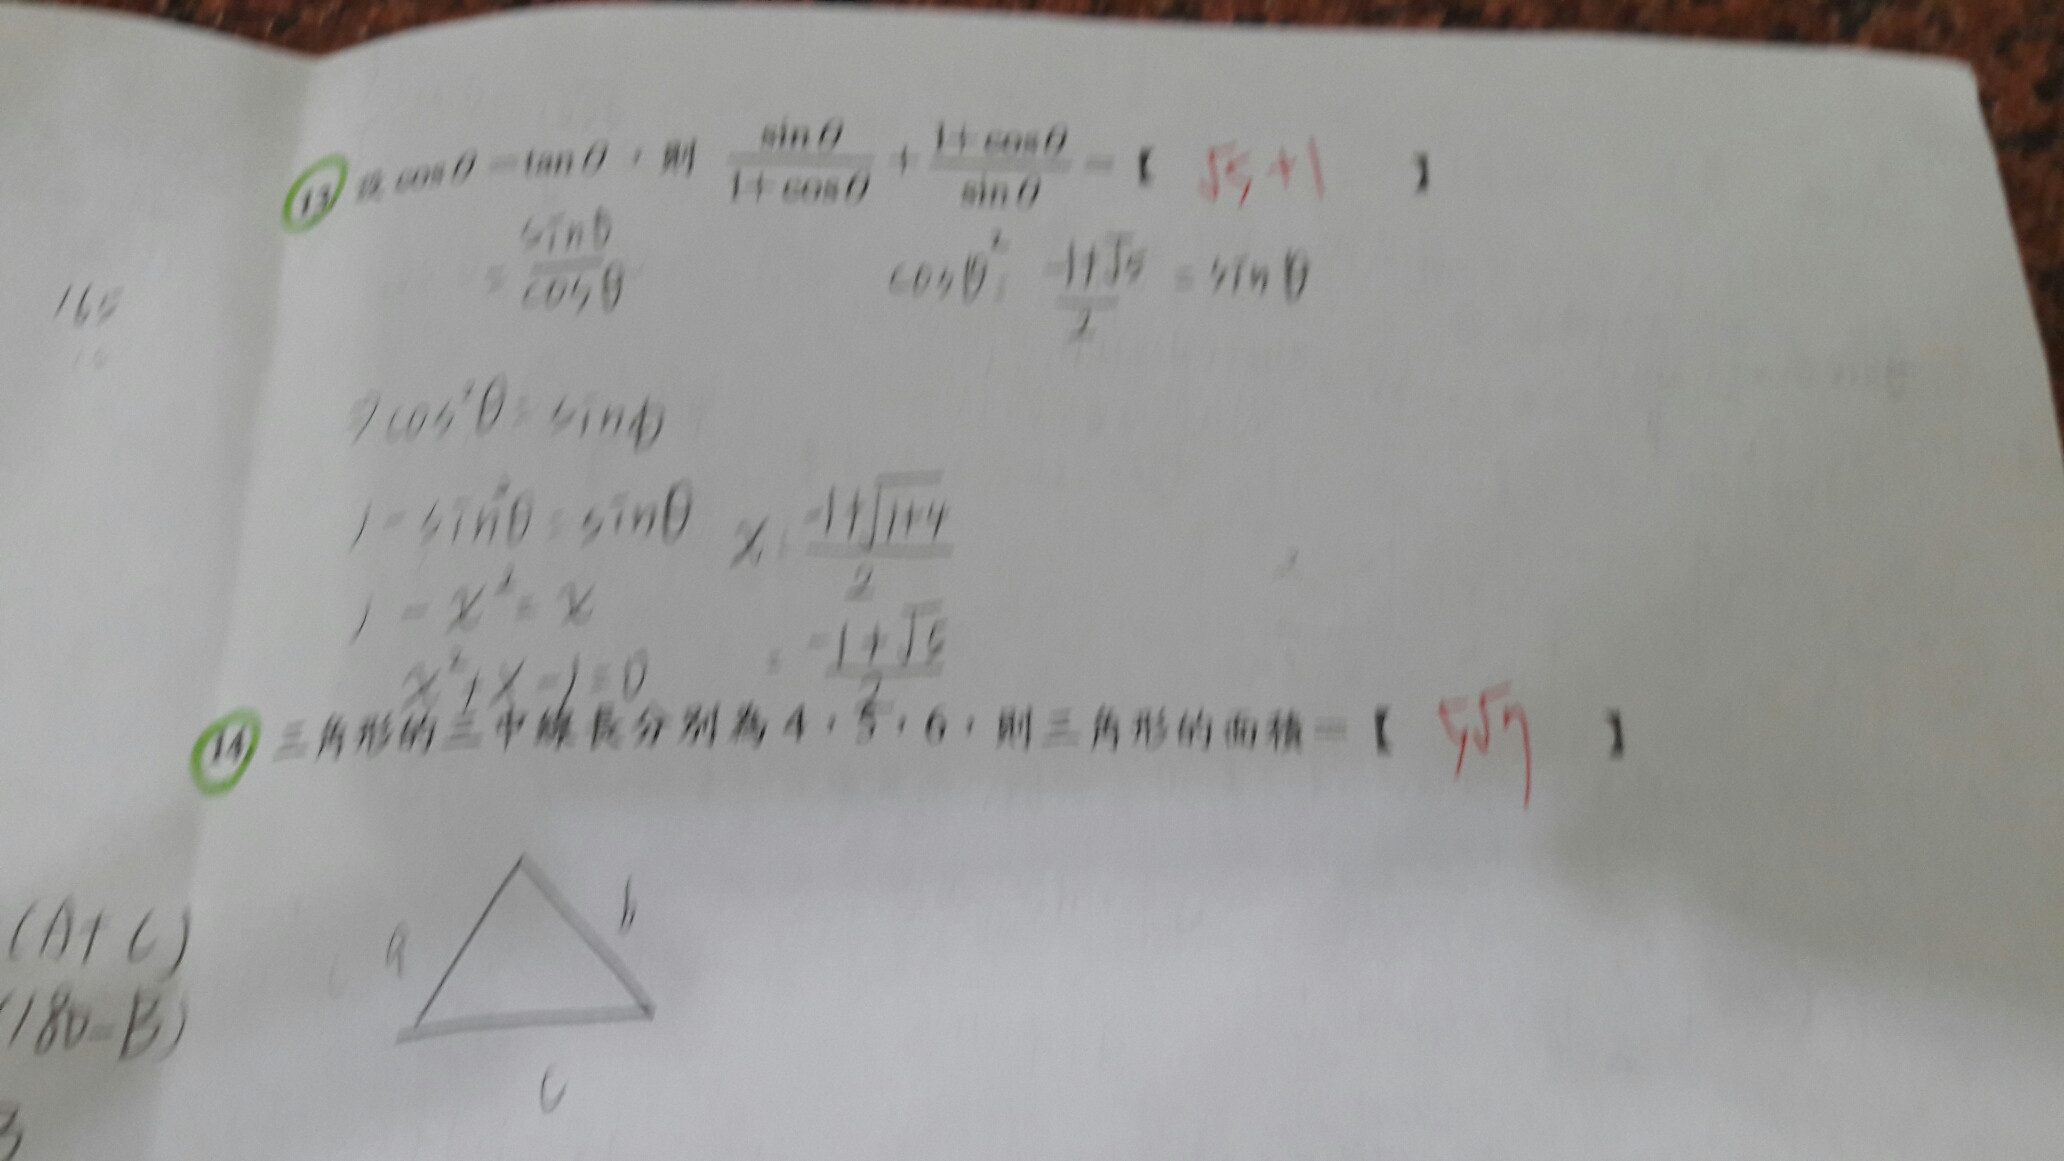 165
15
13 設 cosθ = tanθ，則 sinθ/(1+cosθ) + (1+cosθ)/sinθ =【 √5+1 】
= sinθ/cosθ
cosθ² = (-1+√5)/2 = sinθ
⇒cos²θ = sinθ
1 - sin²θ = sinθ
x = (-1+√(1+4))/2
1 - x² = x
= (-1+√5)/2
x²+x-1=0
14 三角形的三中線長分別為 4，5，6，則三角形的面積 =【 5√7 】
a
b
c
(A+C)
(180-B)